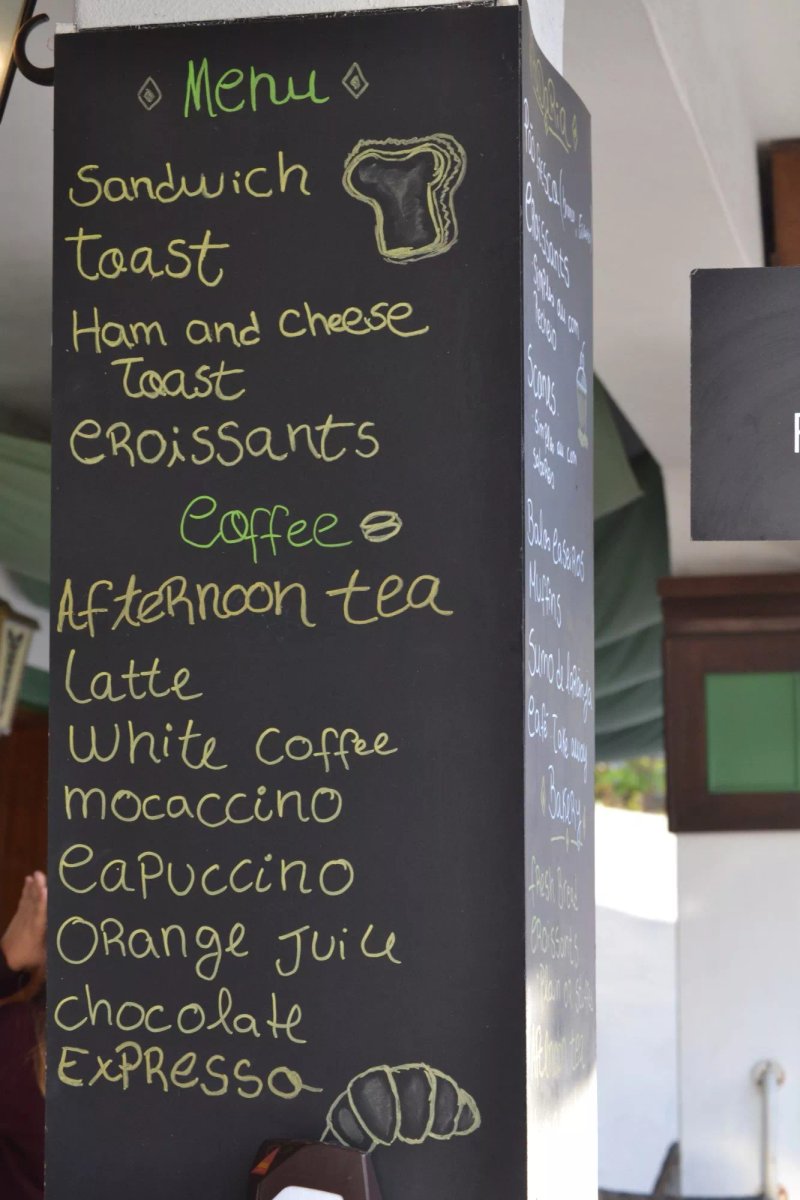 Menu
Sandwich
toast
Ham and cheese
Toast
CROissants
Coffee
AfteRnoon tea
Latte
White Coffee
mocaccino
CaPuccino
ORange Juice
chocolate
ExPResso
Croissants
Simples ou com
Scones
Simples ou com
Bolos caseiros
Muffins
Sumo de laRanja
Café Take away
Bakery
fresh Bread
CROissants